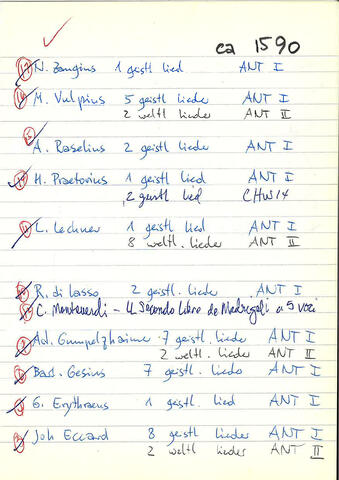 ca 1590
N. Zangius 1 geistl lied ANT I
M. Vulpius 5 geistl lieder ANT I
2 weltl lieder ANT II
A. Raselius 2 geistl lieder ANT I
H. Praetorius 1 geistl lied ANT I
2 geistl lied CHW14
L. Lechner 1 geistl lied ANT I
8 weltl. lieder ANT II
R. di Lasso 2 geistl. lieder ANT I
C. Monteverdi - Il Secondo Libro de Madrigali a 5 voci
Ad. Gumpelzhaimer 7 geistl. lieder ANT I
2 weltl. lieder ANT II
Bart. Gesius 7 geistl. lieder ANT I
G. Erythraeus 1 geistl. lied ANT I
Joh Eccard 8 geistl lieder ANT I
2 weltl lieder ANT II